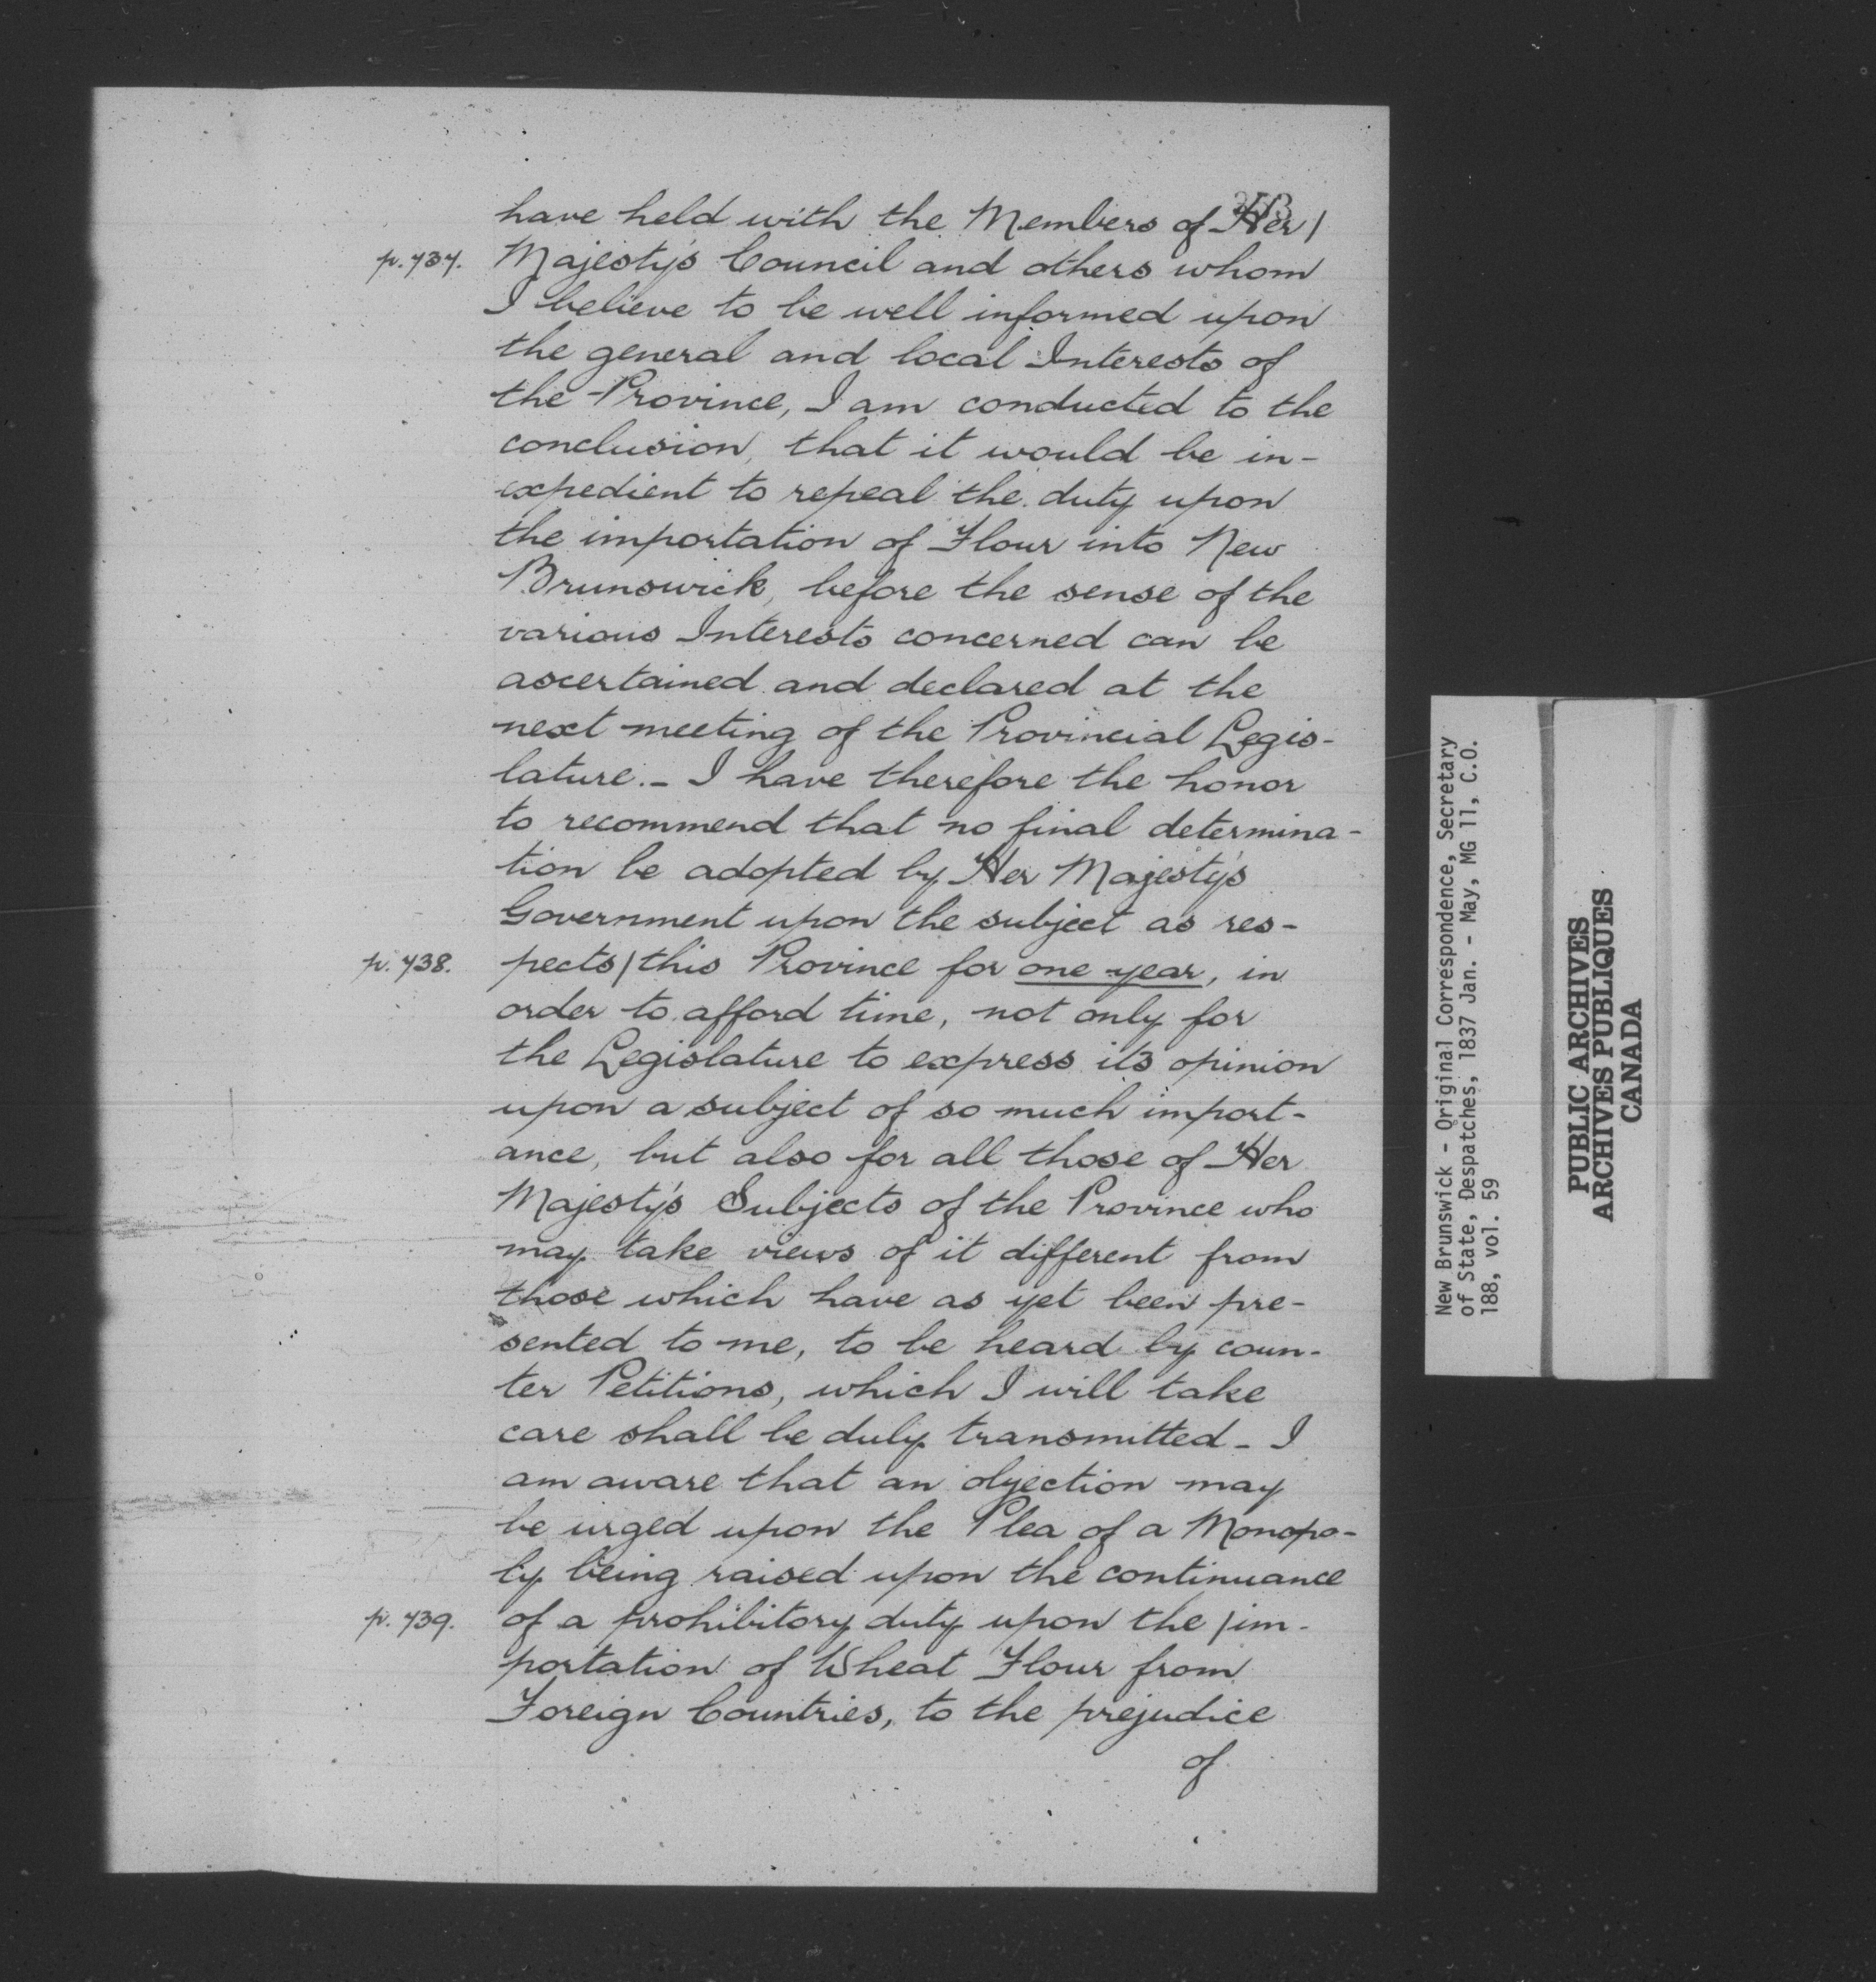 have held with the Members of Her/
p. 737. Majesty's Council and others whom
I believe to be well informed upon
the general and local Interests of
the Province, I am conducted to the
conclusion, that it would be in-
expedient to repeal the duty upon
the importation of Flour into New
Brunswick, before the sense of the
various Interests concerned can be
ascertained and declared at the
next meeting of the Provincial Legis-
lature.- I have therefore the honor
to recommend that no final determina-
tion be adopted by Her Majesty's
Government upon the subject as res-
p. 738. pects/this Province for one year, in
order to afford time, not only for
the Legislature to express its opinion
upon a subject of so much import-
ance, but also for all those of Her
Majesty's Subjects of the Province who
may take views of it different from
those which have as yet been pre-
sented to me, to be heard by coun-
ter Petitions, which I will take
care shall be duly transmitted - I
am aware that an objection may
be urged upon the Plea of a Monopo-
ly being raised upon the continuance
p. 739. of a prohibitory duty upon the /im-
portation of Wheat Flour from
Foreign Countries, to the prejudice
of
New Brunswick - Original Correspondence, Secretary
of State, Despatches, 1837 Jan. - May, MG 11, C.O.
188, vol. 59
PUBLIC ARCHIVES
ARCHIVES PUBLIQUES
CANADA